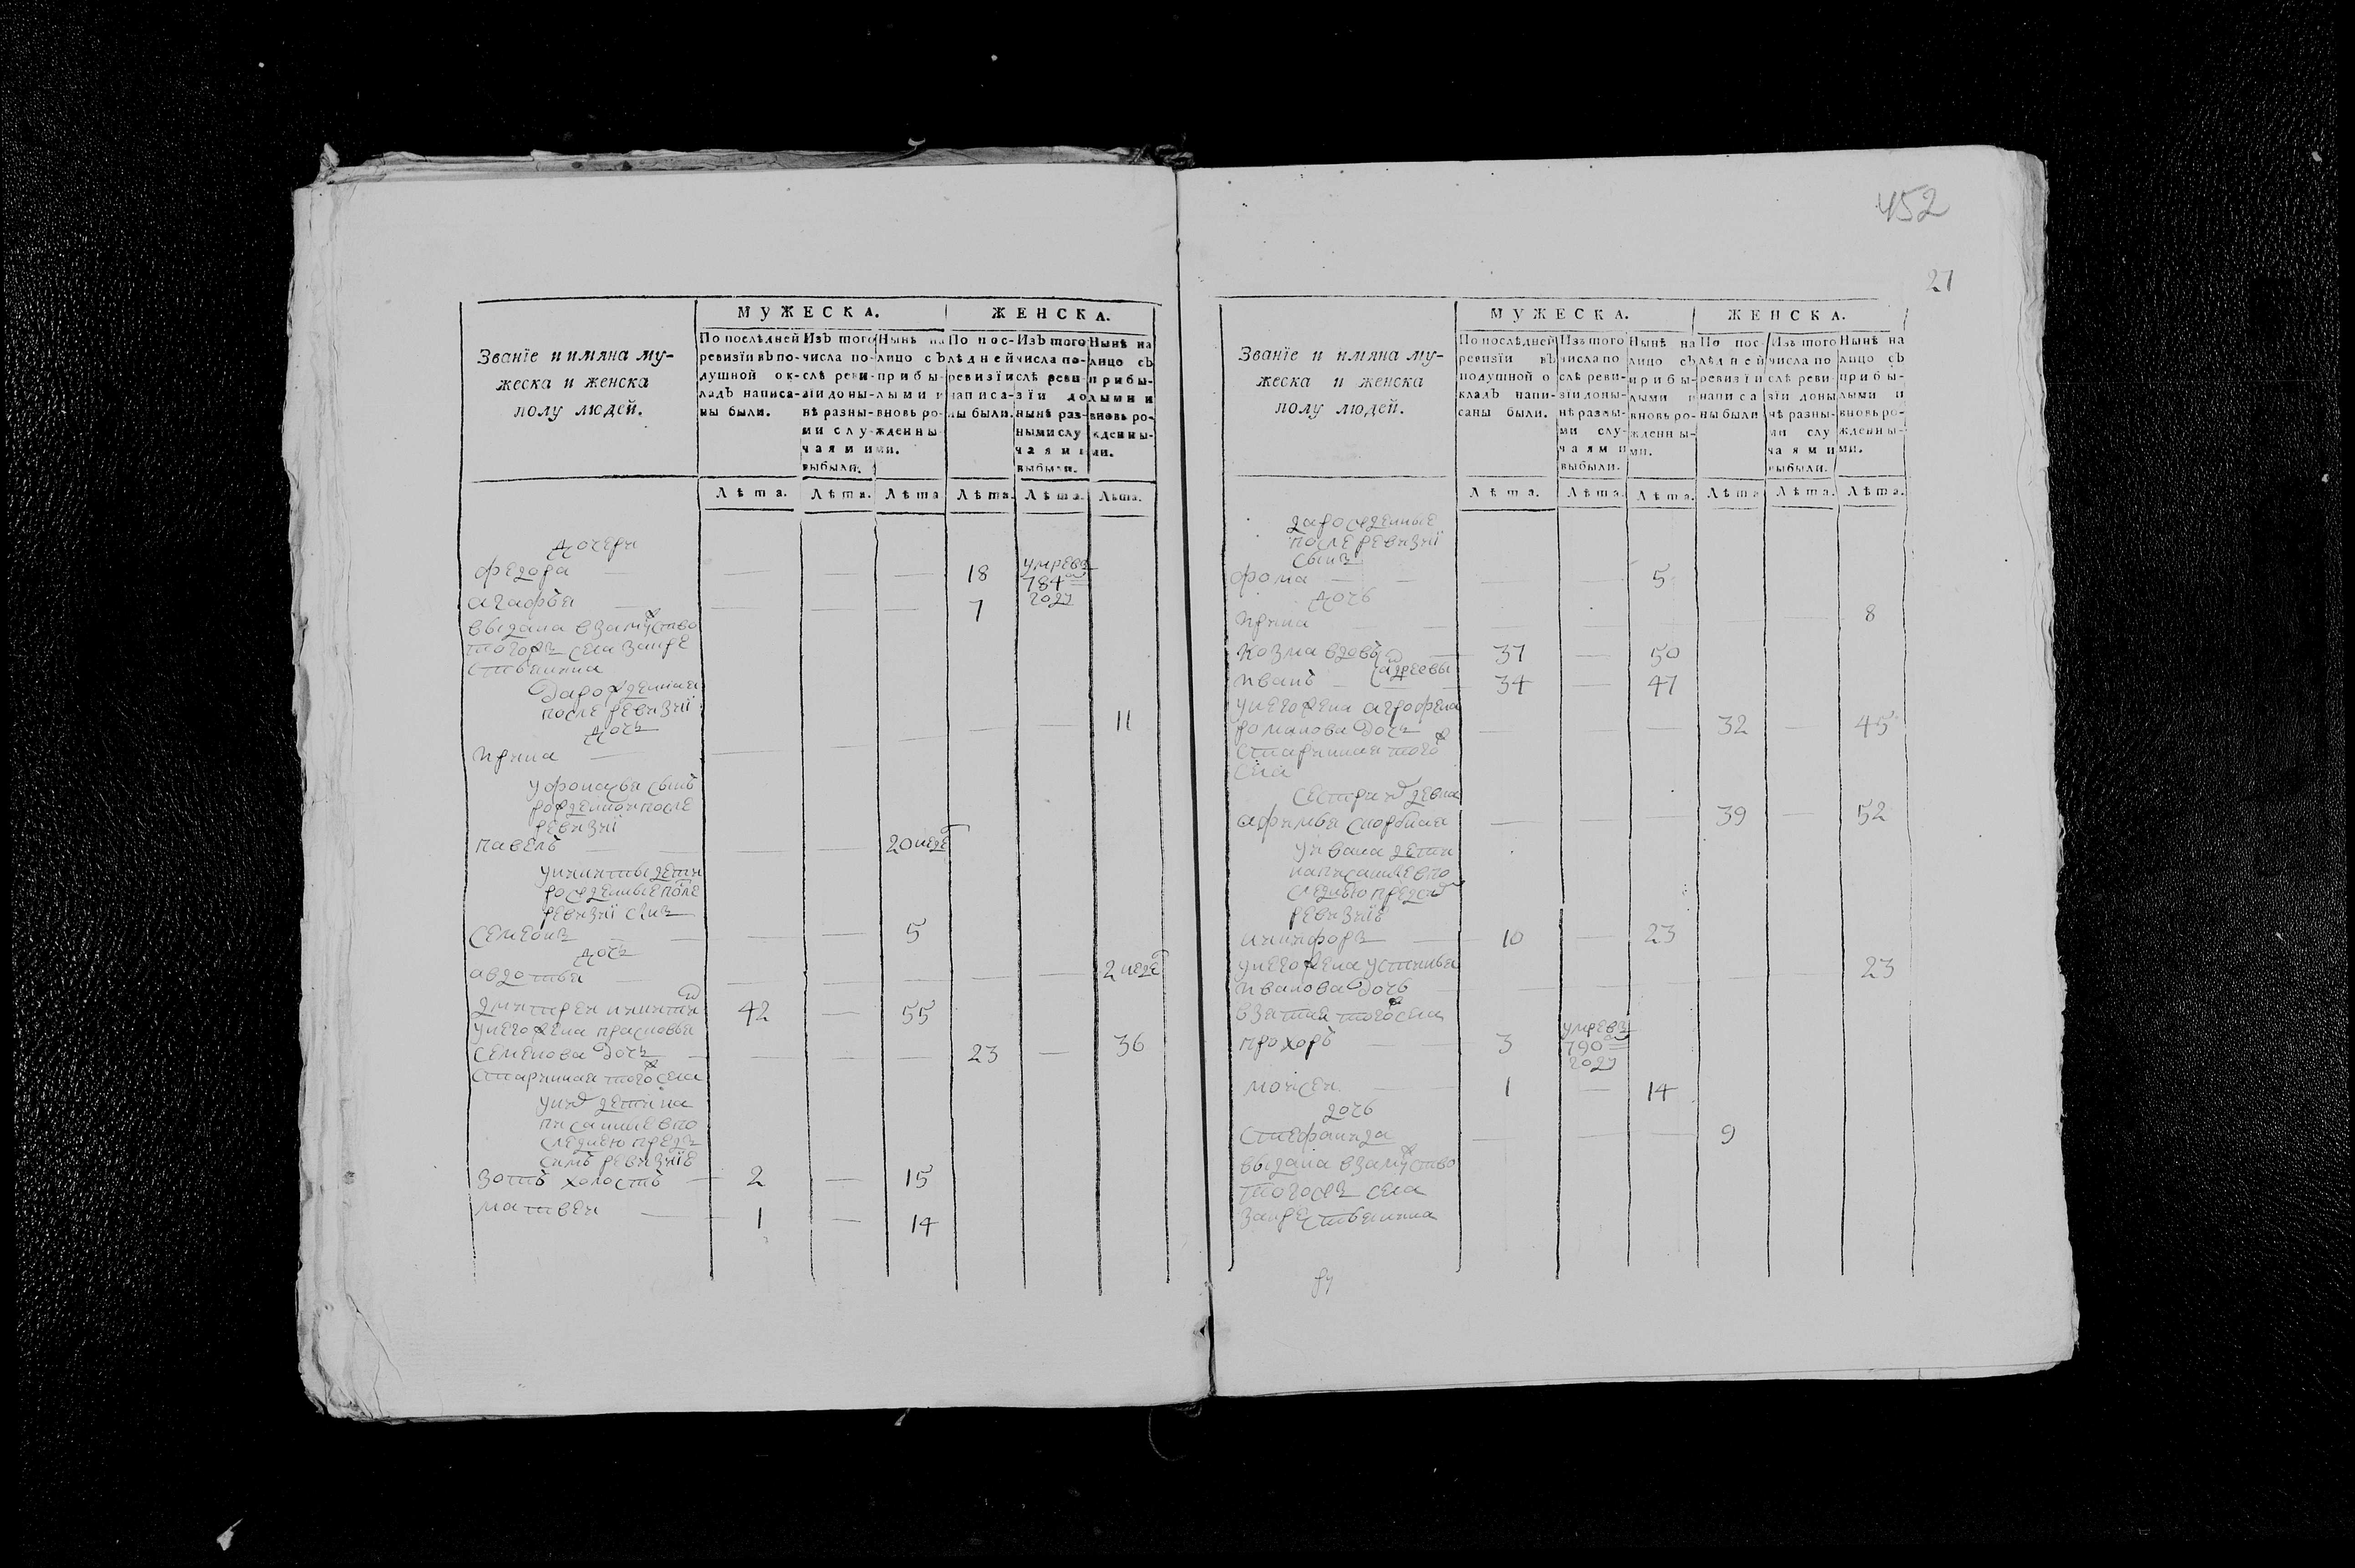 452
27
МУЖЕСКА. ЖЕНСКА.
Званїе и имяна му-
жеска и женска
полу людей.
По послѣдней
ревизїи въ по-
душной ок-
ладъ написа-
ны были.
Изъ того
числа по-
слѣ реви-
зїи доны-
нѣ разны-
ми слу-
чаями
выбыли.
Нынѣ на
лицо съ
прибы-
лыми и
вновь ро-
жденны-
ми.
По пос-
лѣдней
ревизїи
написа-
ны были.
Изъ того
числа по-
слѣ реви-
зїи до
нынѣ раз-
ными слу
чаями
выбыли.
Нынѣ на
лицо съ
прибы-
лыми и
вновь ро-
жденны-
ми.
Лѣта. Лѣта. Лѣта Лѣта. Лѣта. Лѣта.
дочери
федора — — — — 18 умре въ
784м
году
агафья — — — — 7
выдана в замужство
тогож села за кре
стьянина
да рожденная
после ревизиї
дочь
ирина — — — — — — 11
у фонасья сынъ
рожденной после
ревизиї
павелъ — — — 20 неде
у никиты дети
рожденные после
ревизиї сынъ
семенъ — — — 5
дочь
авдотья — — — — — — 2 неде
дмитреи никитин 42 — 55
у него жена прасковья
семенова дочь — — — — 23 — 36
старинная того ж села
у них дети на
писанные в по
следнею предъ
симъ ревизиїе
зотъ холостъ — 2 — 15
матвеи — 1 — 14
МУЖЕСКА. ЖЕНСКА.
Званїе и имяна му-
жеска и женска
полу людей.
По послѣдней
ревизїи въ
подушной о
кладъ напи-
саны были.
Изъ того
числа по
слѣ реви-
зїи доны-
нѣ разны-
ми слу-
чаями
выбыли.
Нынѣ на
лицо съ
прибы-
лыми и
вновь ро-
жденны-
ми.
По пос-
лѣдней
ревизїи
написа
ны были
Изъ того
числа по
слѣ реви
зїи доны
нѣ разны-
ми слу
чаями
выбыли.
Нынѣ на
лицо съ
прибы-
лыми и
вновь ро-
жденны-
ми.
Лѣта. Лѣта. Лѣта. Лѣта Лѣта. Лѣта.
да рожденные
после ревизиї
сынъ
фома — — — — 5
дочь
ирина — — — — — — 8
козма вдовъ — 37 — 50
андреевы
иванъ — 34 — 47
у него жена агрофена
романова дочь — — — 32 — 45
старинная того ж
села
сестра их девка
афимья скорбная — — — 39 — 52
у ивана дети
написанные в по
следнью пред сим
ревизиїе
никифоръ — 10 — 23
у него жена устинья
иванова дочь — — — — — 23
взятая того ж села
прохоръ — 3 умре въ
790м
году
моисеи — 1 — 14
дочь
стефанида — — — 9
выдана в замужство
тогожъ села
за крестьянина